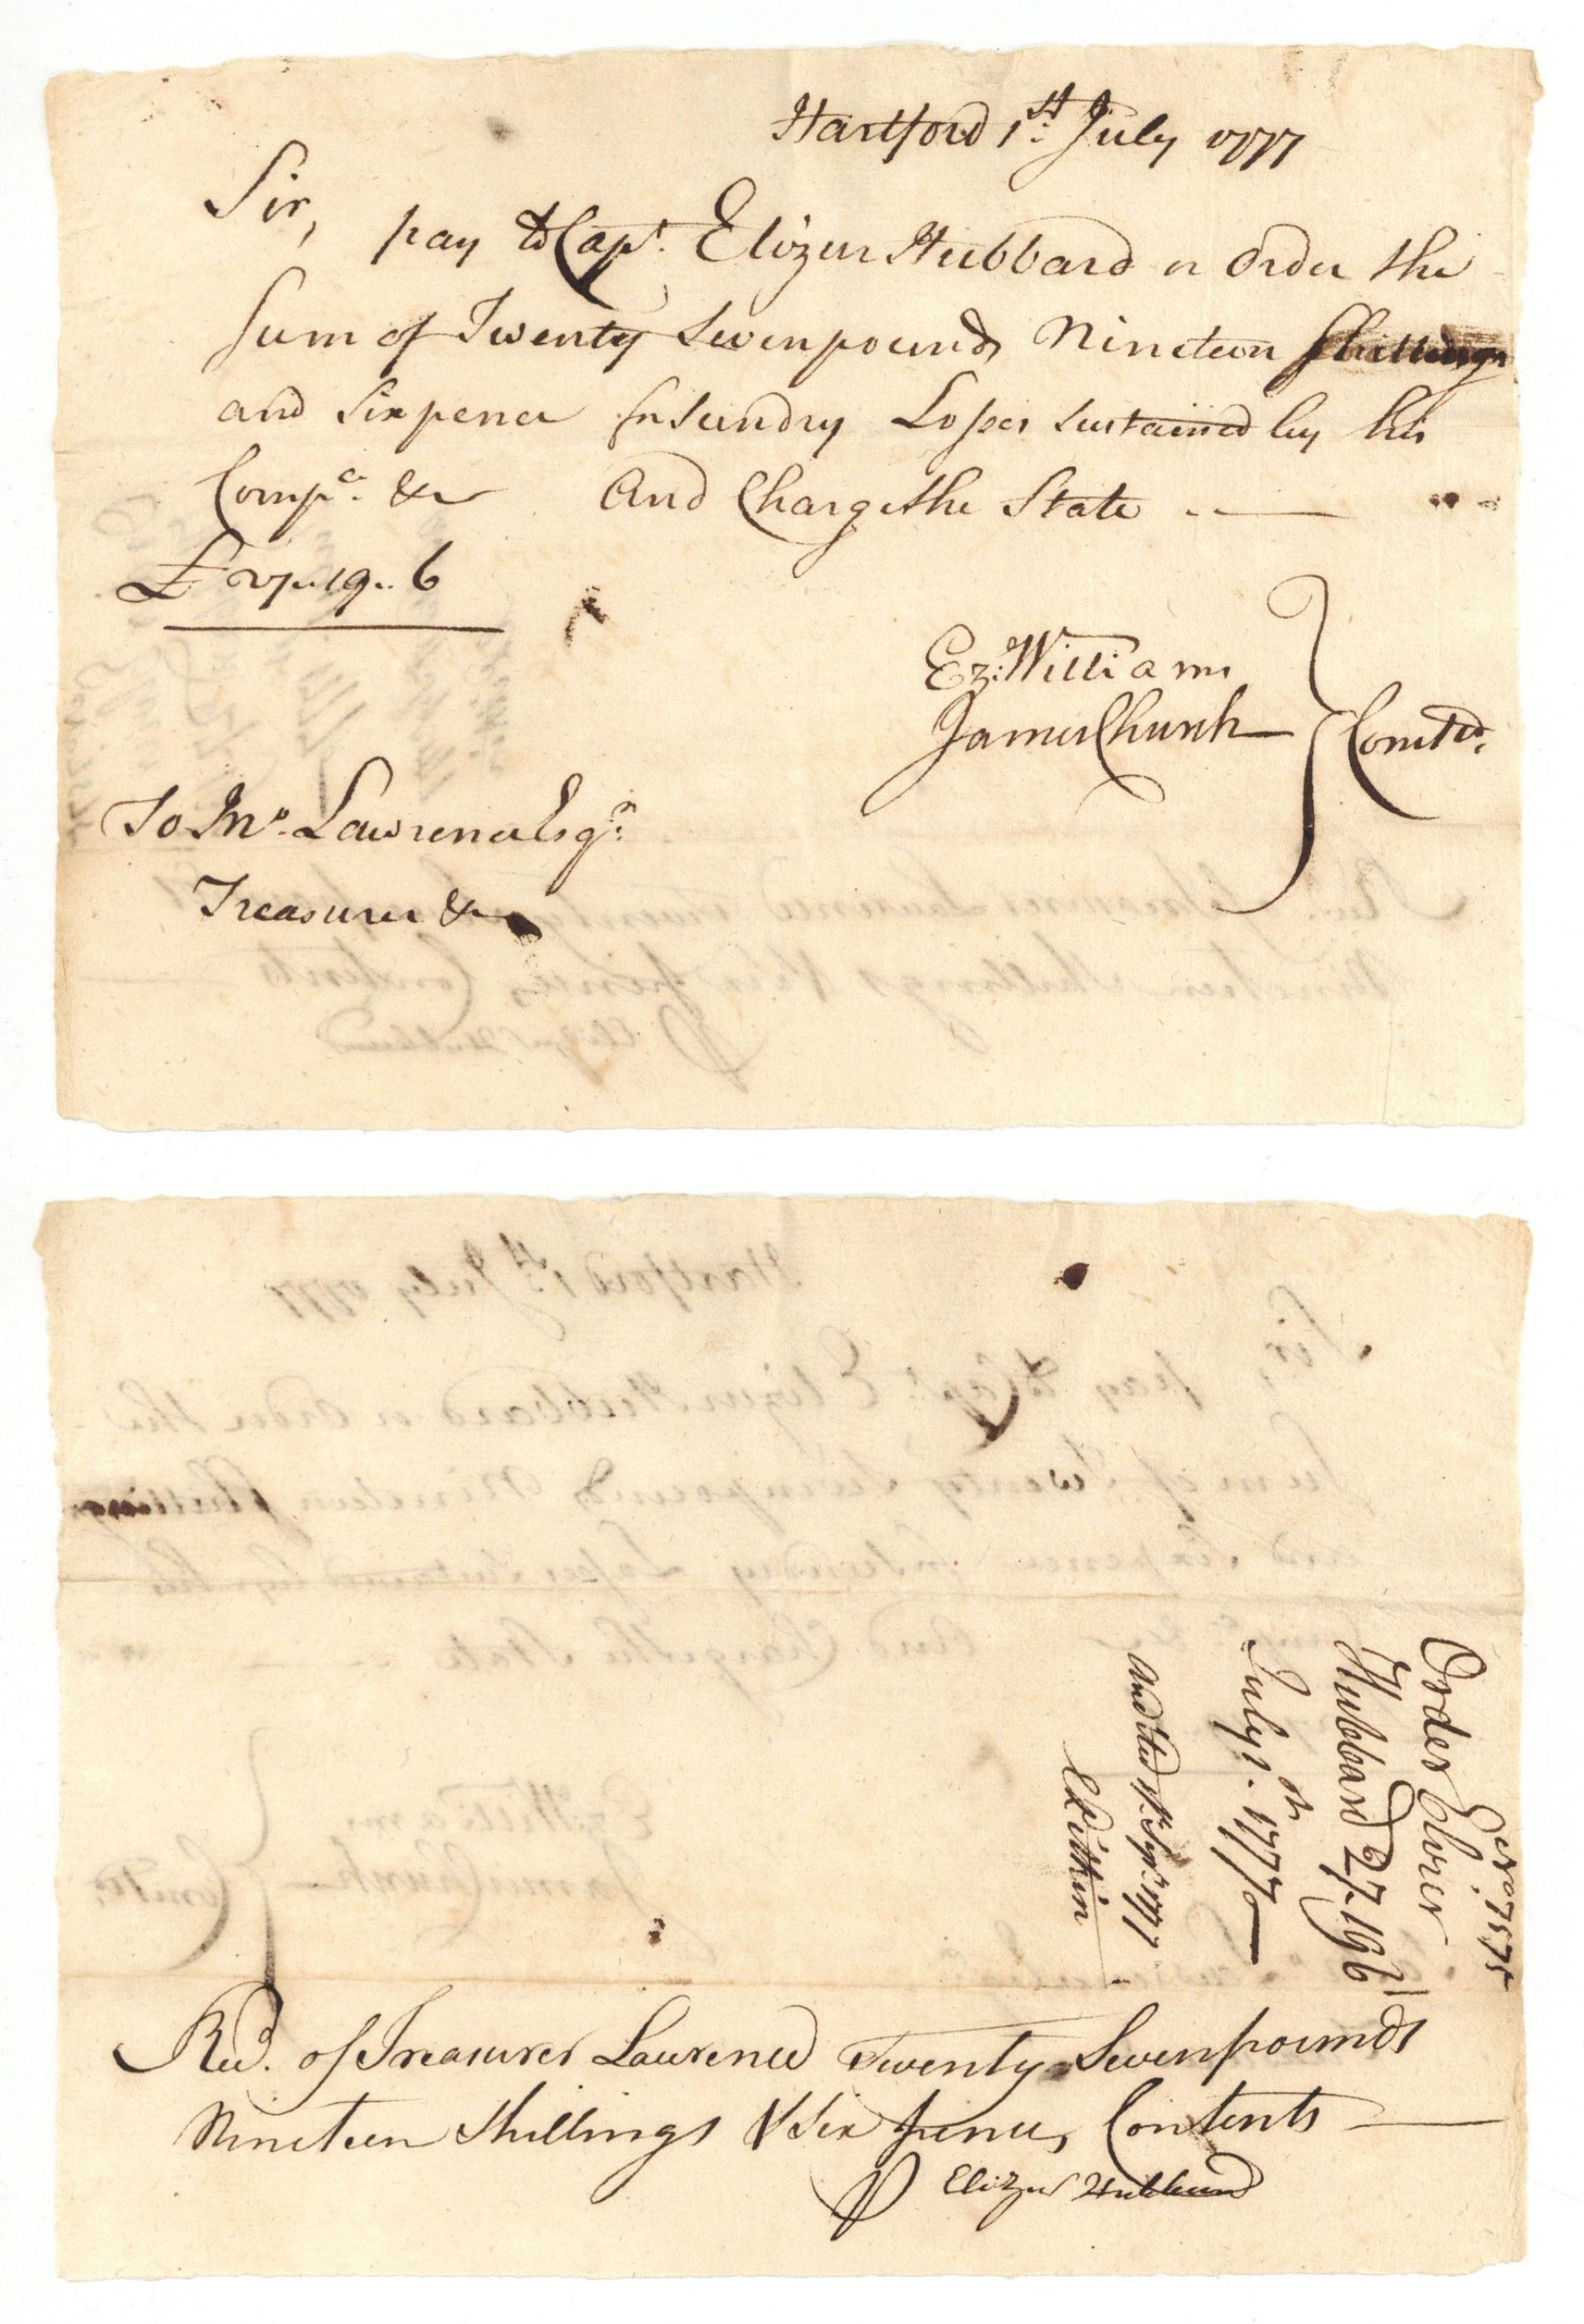 Hartford 1st. July 1777
Sir, pay to Capt. Elizur Hubbard or order the
Sum of Twenty Seven pounds Nineteen Shillings
and Six pence for Sundry Losses Sustained by his
Compa. &c And Charge the State
£ 27..19..6
Ez: Williams
James Church
Comtee.
To Jno. Lawrence Esqr.
Treasurer &c
No. 7575
Order Elizer
Hubbard 27.19.6
July 1.st 1777
Audited
E Pitkin
Recd. of Treasurer Lawrence Twenty Seven pounds
Nineteen Shillings & Six pence, Contents
Elizur Hubbard